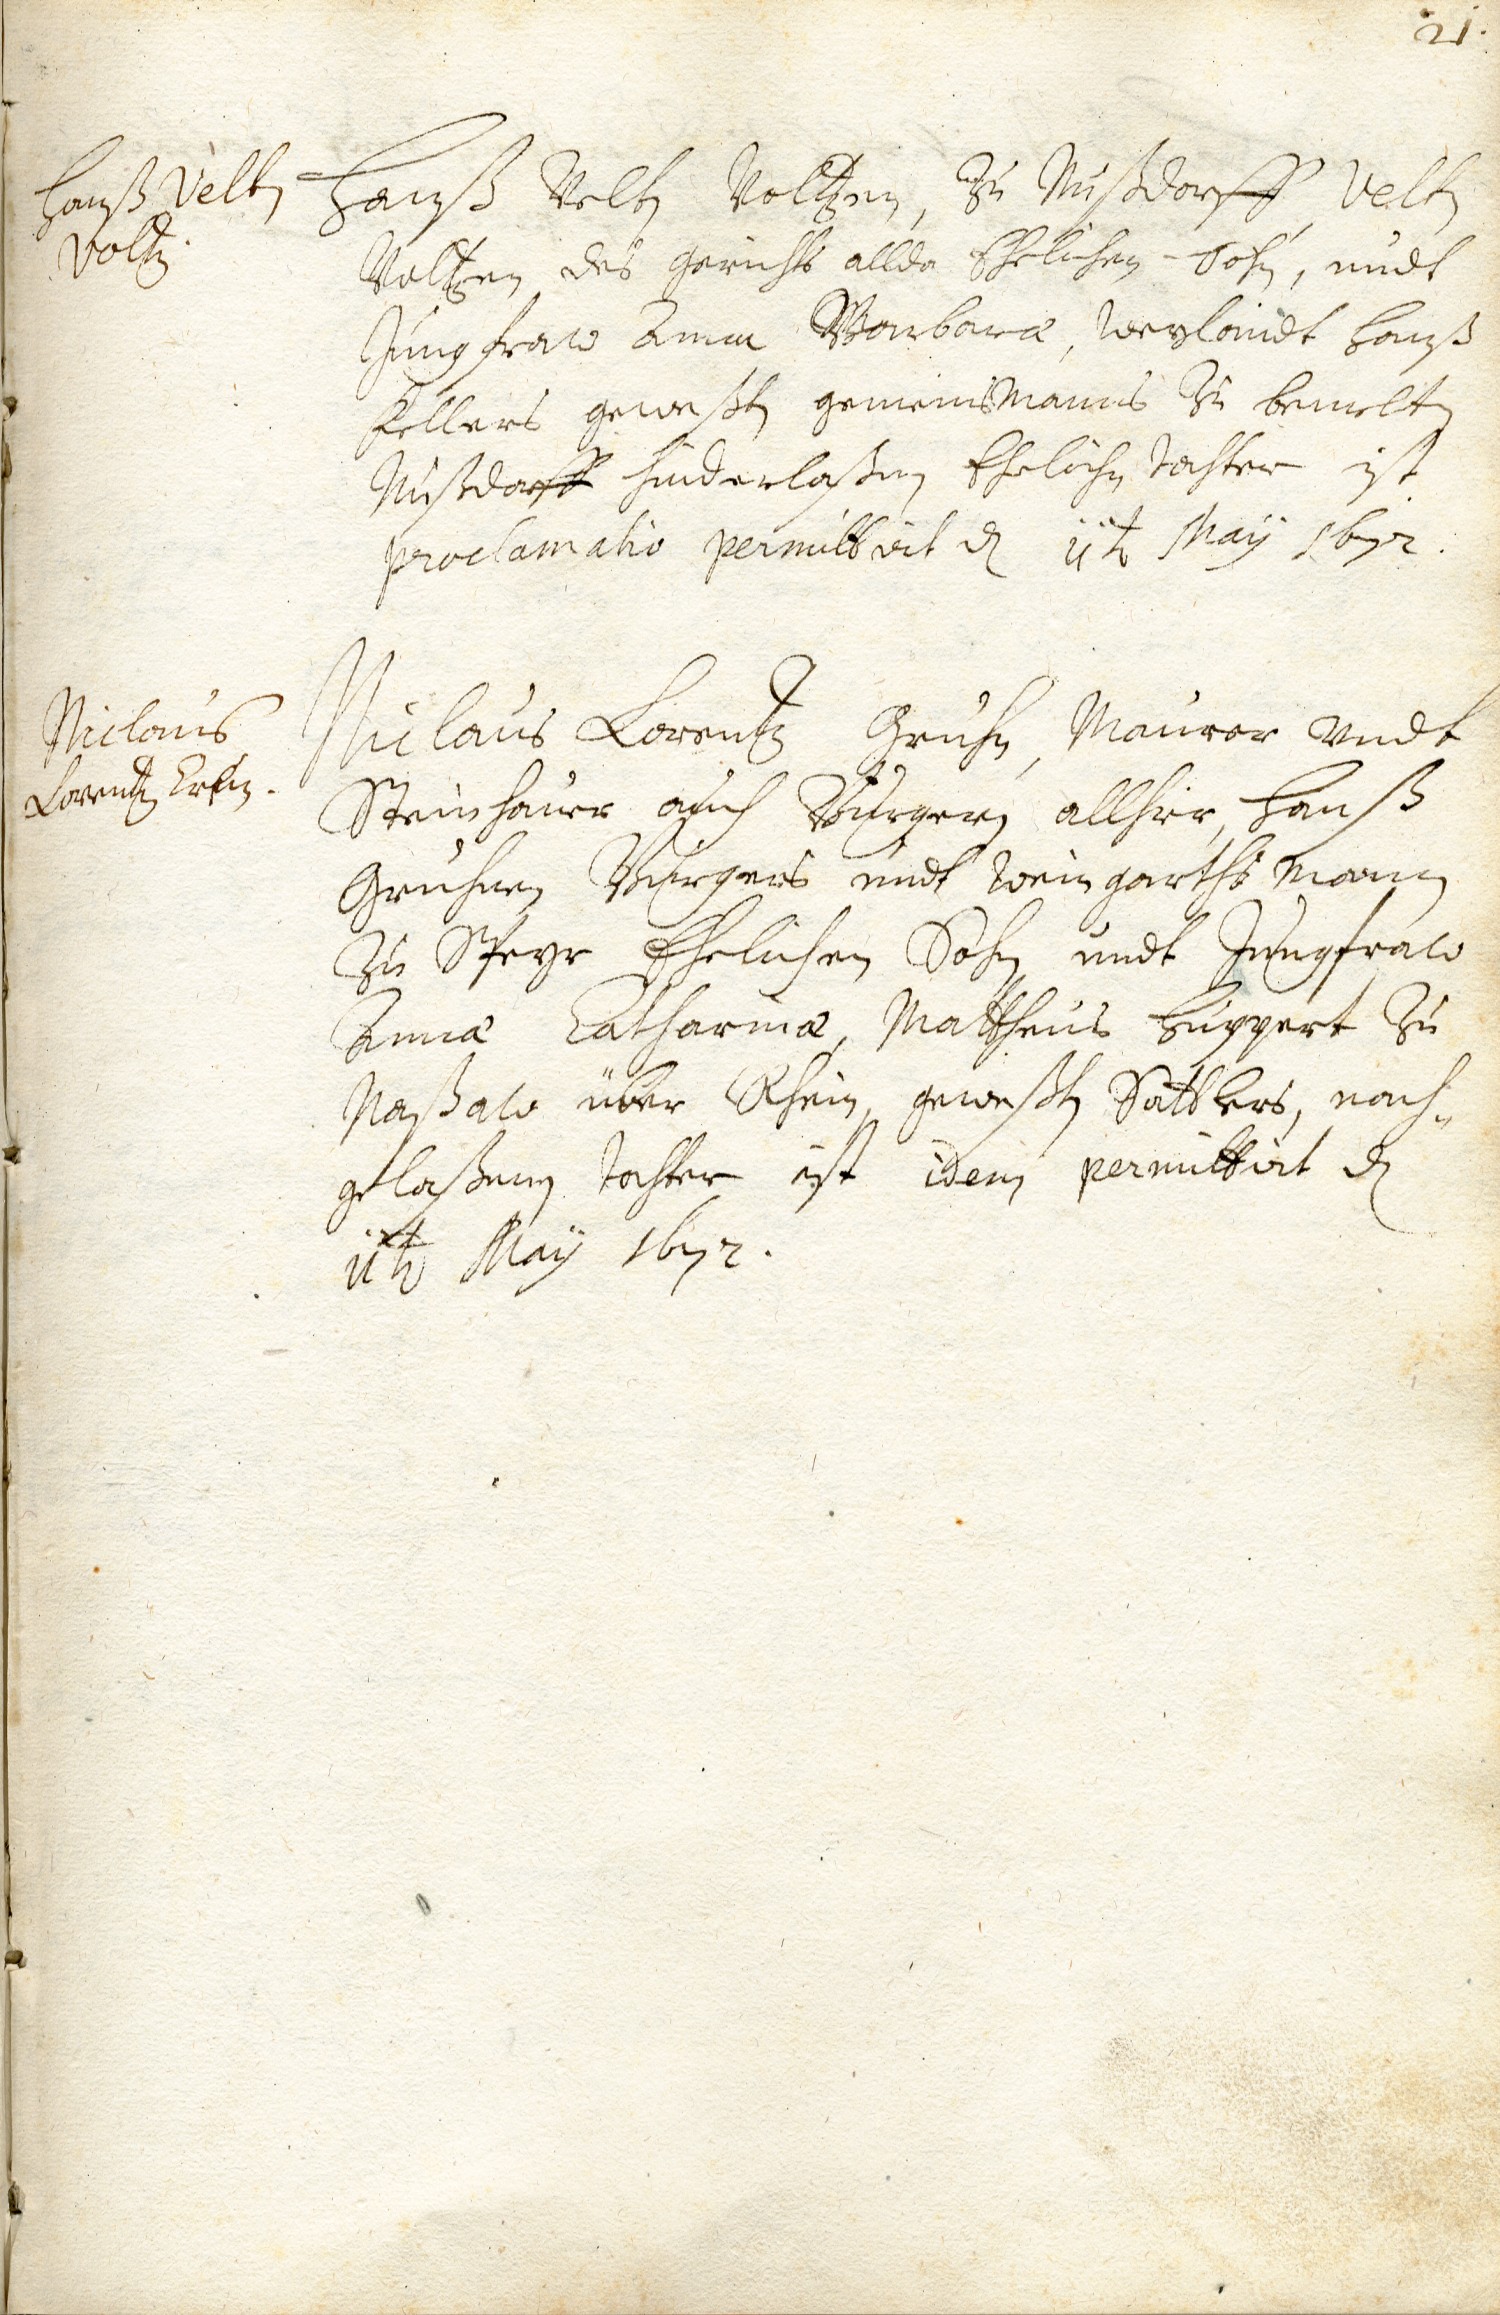 21.
Hanß Velten
Voltz.
Hanß Velten Voltzen, zu Nußdorff, Velten
Voltzen des gerichts allda Ehelichen Sohn, undt
Jungfraw Anna Barbara, weylandt Hanß
Kellers geweßten gemeinsmanns zu bemelten
Nußdorff hinderlaßen Ehelichen Tochter ist
proclamatio permittirt den 11ten Maÿ 1672.
Niclaus
Lorentz
Niclaus Lorentz Gruhn, Maurer undt
Steinhauer auch Burgern allhier, Hanß
Gruhnen Burgers undt weingarthsmann
zu Speyr Ehelichen Sohn undt Jungfraw
Anna Catharina, Mattheus Huppert zu
Naßaw über Rhein, geweßten Sattlers, nach-
gelaßenen Tochter ist idem permittirt den
11ten Maÿ 1672.